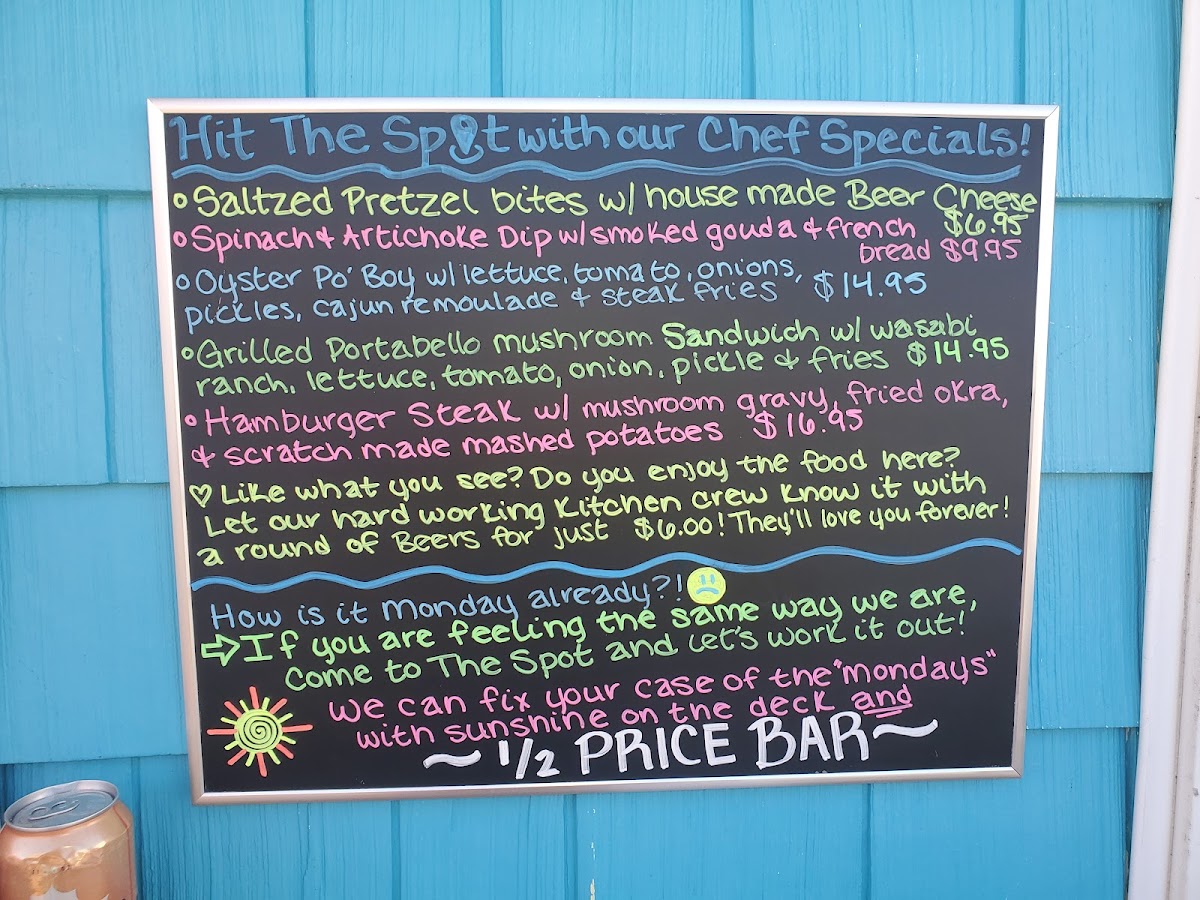 Hit The Spot with our Chef Specials!
• Saltzed Pretzel bites w/ house made Beer Cheese
$6.95
• Spinach & Artichoke Dip w/ smoked gouda & french
bread $9.95
• Oyster Po' Boy w/ lettuce, tomato, onions,
pickles, cajun remoulade & steak fries $14.95
• Grilled Portabello mushroom Sandwich w/ wasabi
ranch, lettuce, tomato, onion, pickle & fries $14.95
• Hamburger Steak w/ mushroom gravy, fried okra,
& scratch made mashed potatoes $16.95
♡ Like what you see? Do you enjoy the food here?
Let our hard working Kitchen crew know it with
a round of Beers for just $6.00! They'll love you forever!
How is it Monday already?!
⇨ If you are feeling the same way we are,
Come to The Spot and Let's work it out!
We can fix your case of the "mondays"
with sunshine on the deck and
~ 1/2 PRICE BAR ~